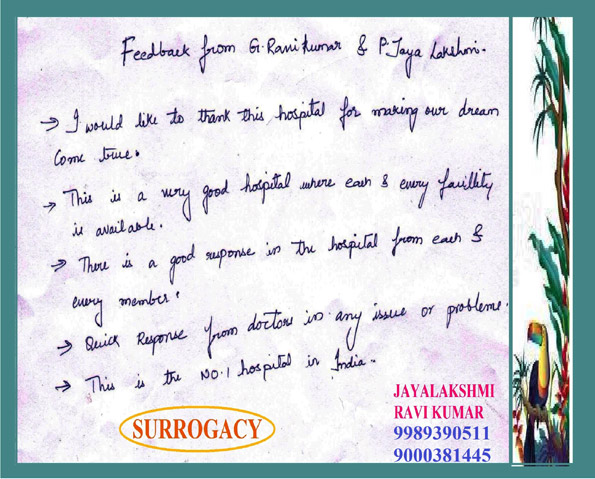 Feedback from G. Ravi Kumar & P. Jaya Lakshmi.
→ I would like to thank this hospital for making our dream
come true.
→ This is a very good hospital where each & every facillity
is available.
→ There is a good response in the hospital from each &
every member.
→ Quick Response from doctors in any issue or probleme.
→ This is the NO.1 hospital in India.
SURROGACY
JAYALAKSHMI
RAVI KUMAR
9989390511
9000381445